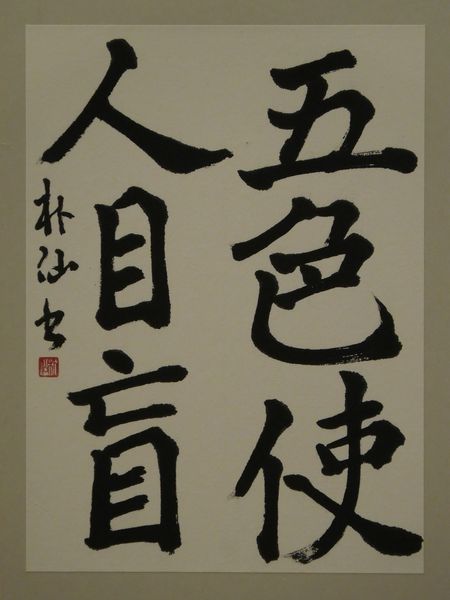 五色使
人目盲
朴仙书